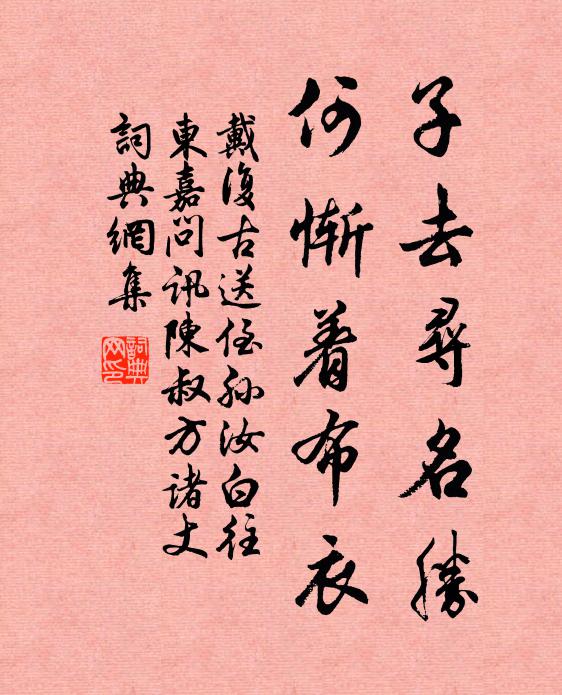 子去尋名勝
何慚着布衣
戴復古送侄孫汝白往
東嘉問訊陳叔方諸丈
詞典網集
詞典網印